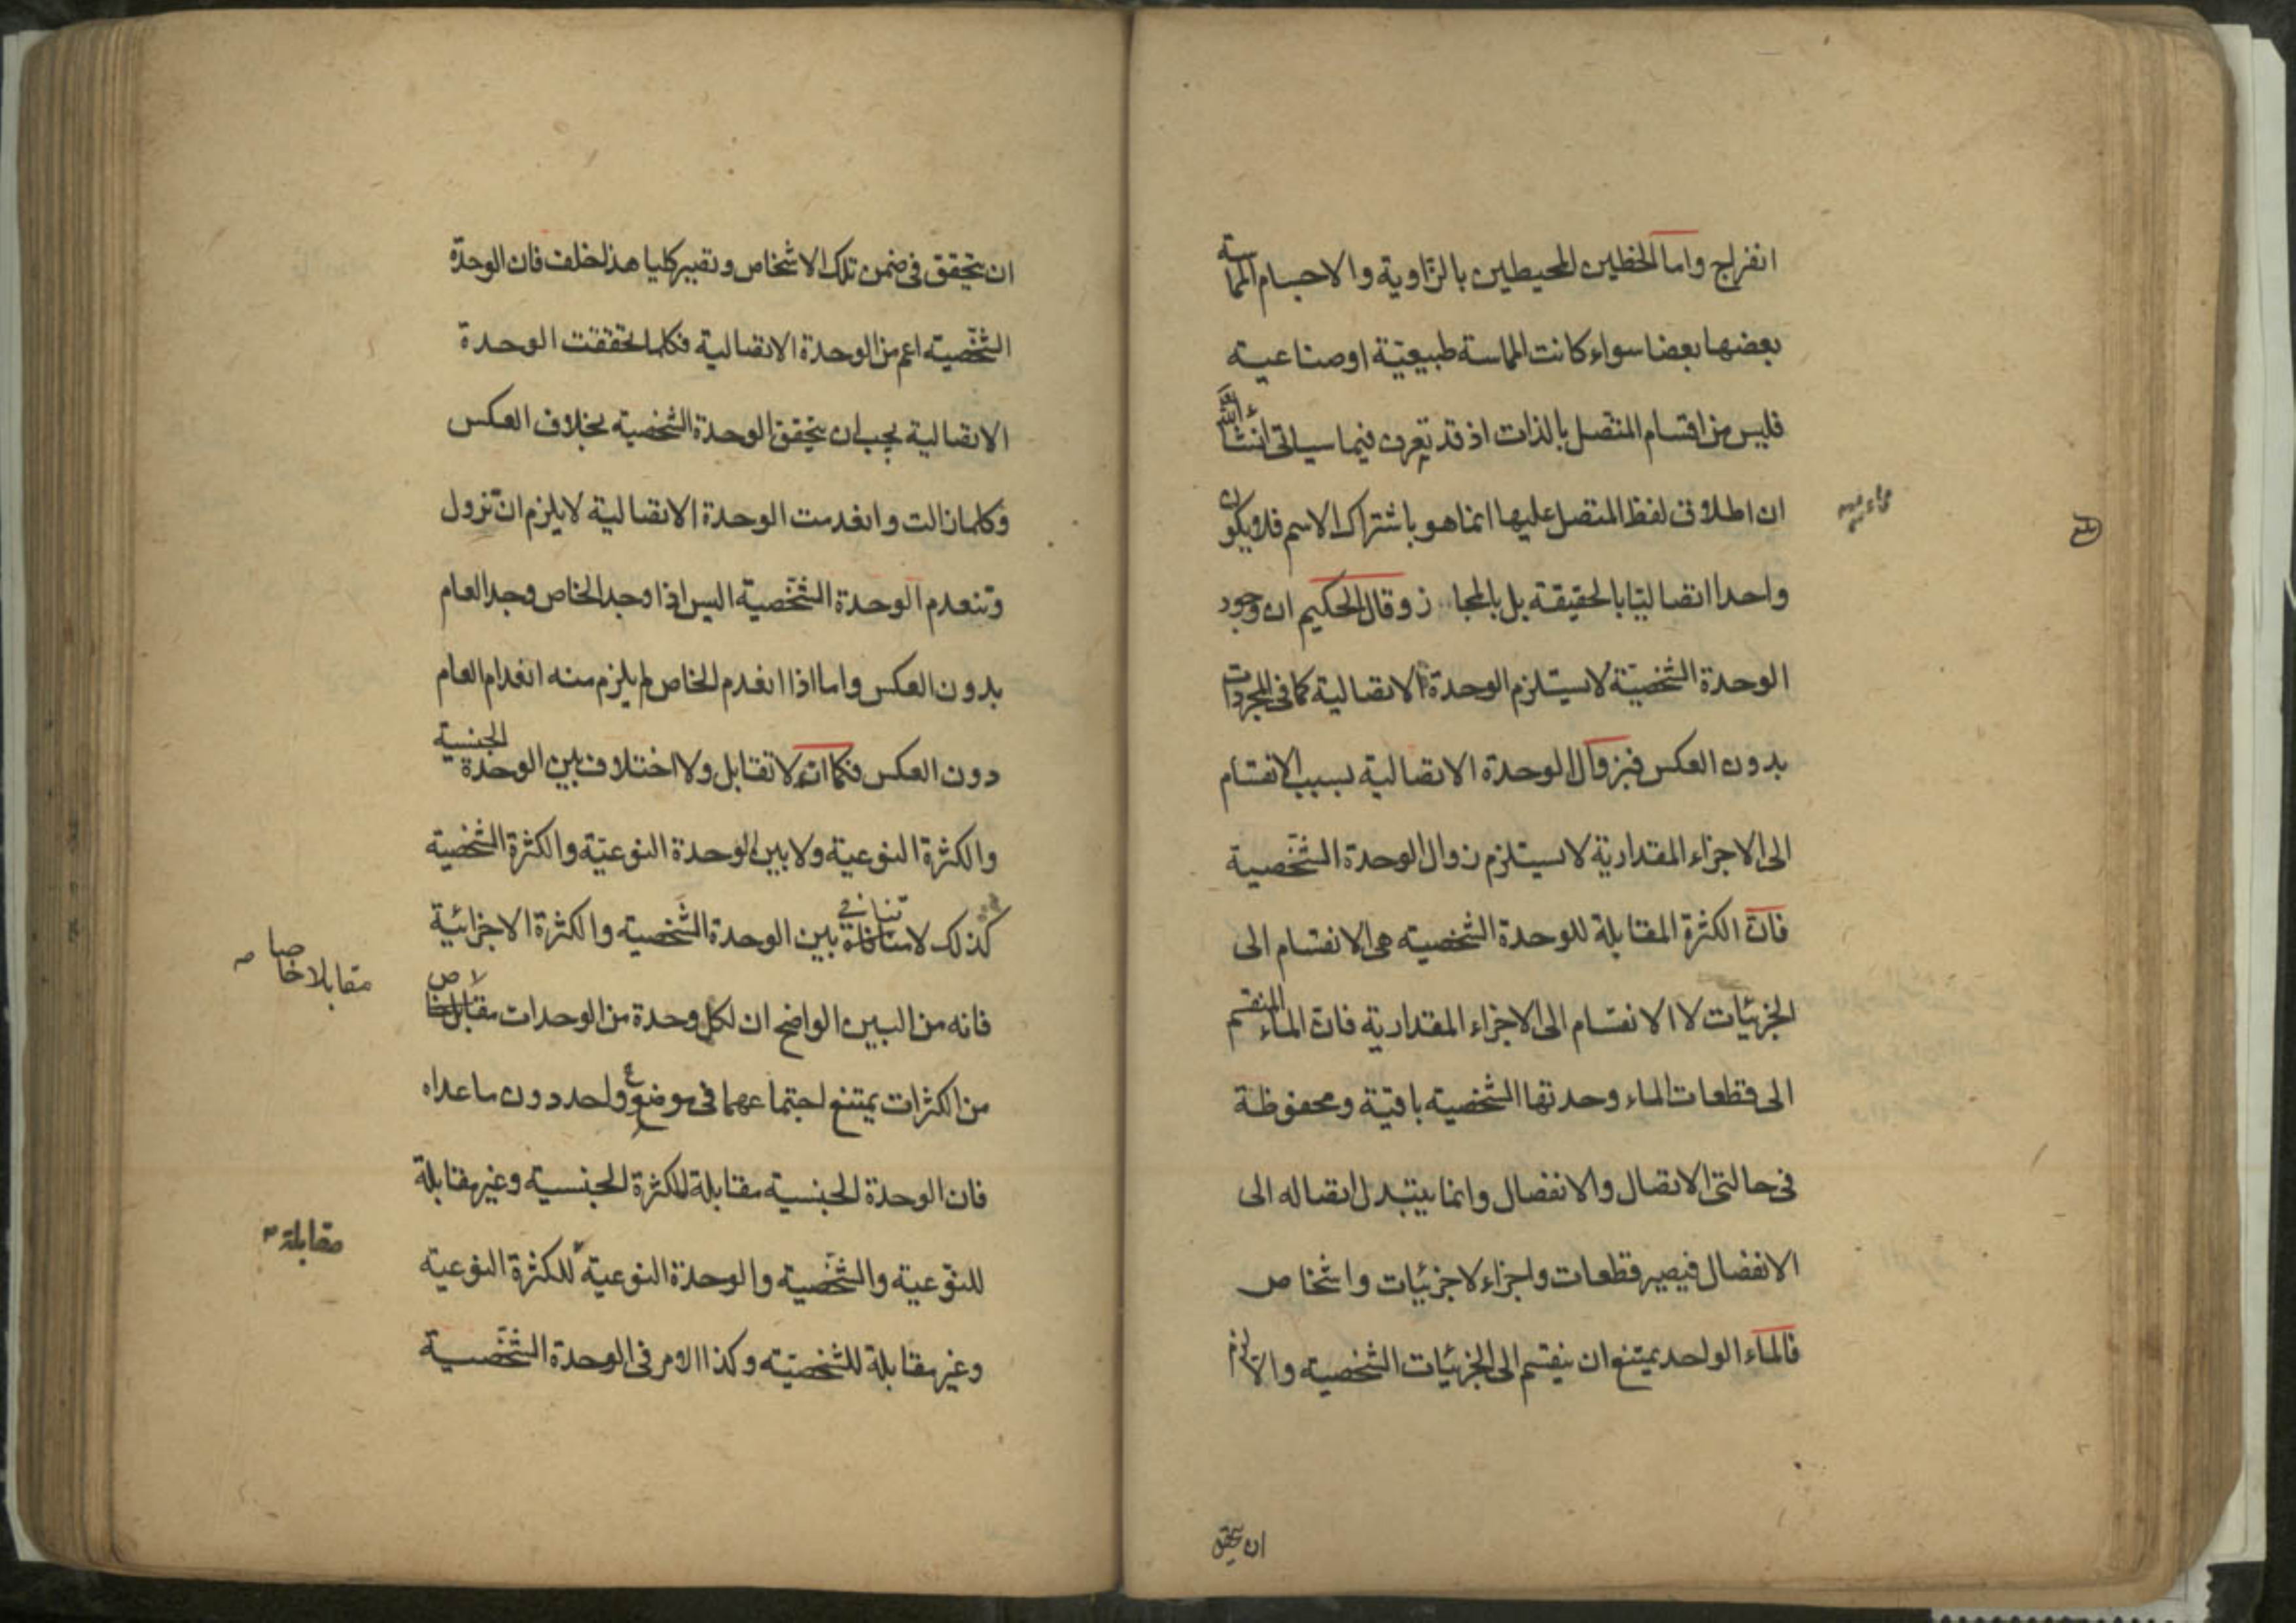 انفراج واما الخطين المحيطين بالزاوية والاجسام المماسته
بعضها بعضا سواء كانت المماسة طبيعيّة او صناعية
فليس من اقسام المتصل بالذات اذ قد تعرف فيما سياتى انشاء الله
ان اطلاق لفظ المتصل عليها انما هو باشتراك الاسم فلا يكون
واحدا اتصاليّا بالحقيقة بل بالمجا ز وقال الحكيم ان وجود
الوحدة الشخصيّة لا يستلزم الوحدة الاتصالية كما فى المجردات
بدون العكس فبزوال الوحدة الاتصالية بسبب الانقسام
الى الاجزاء المقدارية لا يستلزم زوال الوحدة الشخصية
فان الكثرة المقابلة للوحدة الشخصية هى الانقسام الى
الجزئيات لا الانقسام الى الاجزاء المقدارية فان الماء المنقسم
الى قطعات الماء وحدتها الشخصية باقية ومحفوظة
فى حالتى الاتصال والانفصال وانما يتبدل اتصاله الى
الانفصال فيصير قطعات واجزاء لا جزئيات واشخاص
فالماء الواحد يمتنع ان ينقسم الى الجزئيات الشخصية والا لزم
ان يتحقق
ان يتحقق فى ضمن تلك الاشخاص وتصير كليا هذا خلف فان الوحدة
الشخصية اعم من الوحدة الاتصالية فكلما تحققت الوحدة
الاتصالية يجب ان يتحقق الوحدة الشخصية بخلاف العكس
وكلما زالت وانعدمت الوحدة الاتصالية لا يلزم ان تزول
وتنعدم الوحدة الشخصية اليس اذا وجد الخاص وجد العام
بدون العكس واما اذا انعدم الخاص لم يلزم منه انعدام العام
دون العكس فكما انه لا تقابل ولا اختلاف بين الوحدة الجنسية
والكثرة النوعية ولا بين الوحدة النوعيّة والكثرة الشخصية
كذلك لا تنافى بين الوحدة الشخصية والكثرة الاجزائية
فانه من البين الواضح ان لكل وحدة من الوحدات مقابلا خاصا
مقابلا خاصا
من الكثرات يمتنع اجتماعهما فى موضع واحد دون ما عداه
فان الوحدة الجنسية مقابلة للكثرة الجنسية وغير مقابلة
للنوعية والشخصية والوحدة النوعية للكثرة النوعية
مقابلة
وغير مقابلة للشخصيّة وكذا الامر فى الوحدة الشخصية